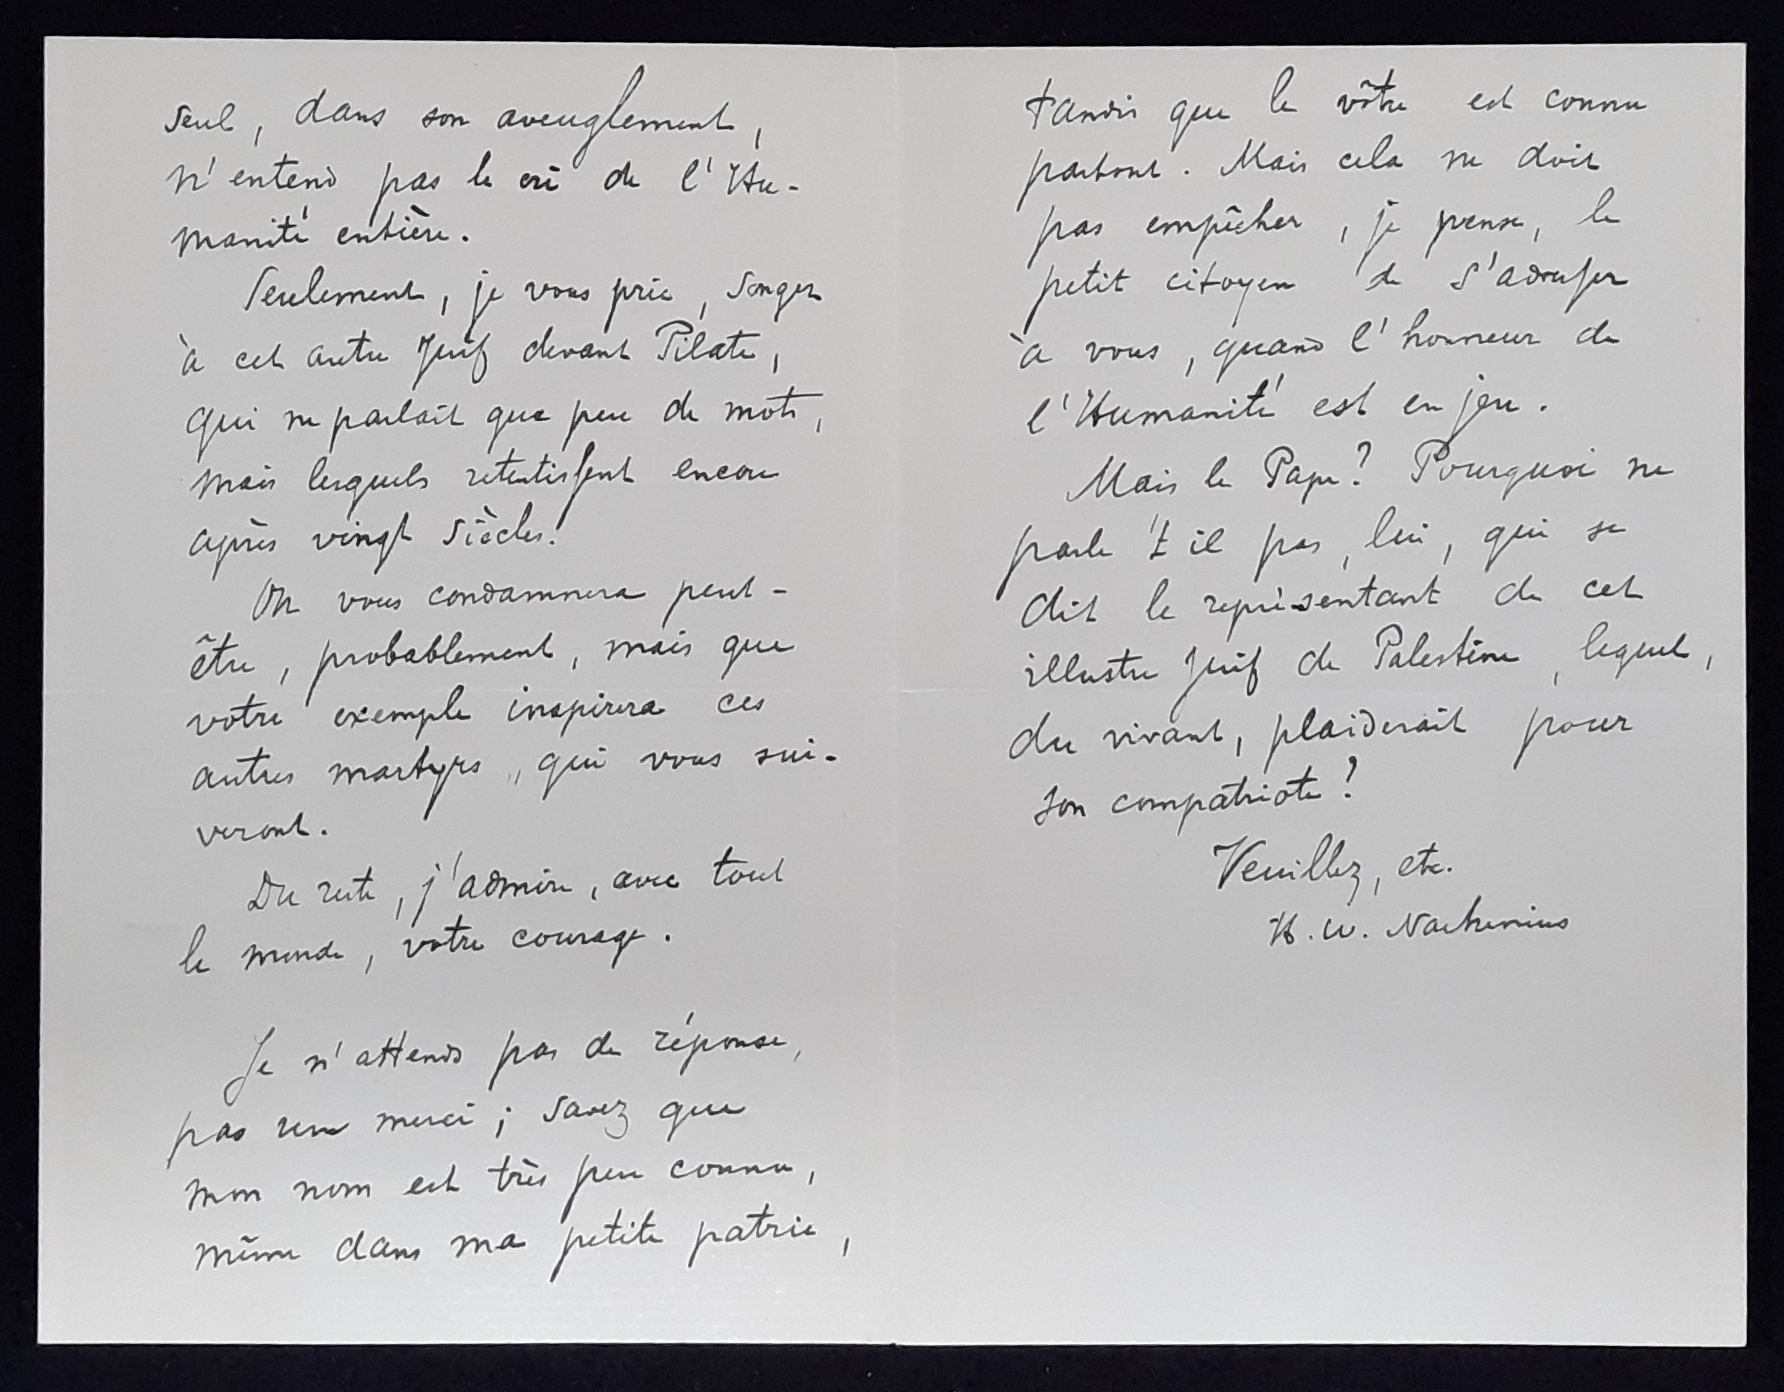 seul, dans son aveuglement,
n'entend pas le cri de l'Hu-
manité entière.
Seulement, je vous prie, songez
à cet autre Juif devant Pilate,
qui ne parlait que peu de mots,
mais lesquels retentissent encore
après vingt siècles!
On vous condamnera peut-
être, probablement, mais que
votre exemple inspirera ces
autres martyrs, qui vous sui-
veront.
Du reste, j'admire, avec tout
le monde, votre courage.
Je n'attends pas de réponse,
pas un merci; savez que
mon nom est très peu connu,
même dans ma petite patrie,
tandis que le vôtre est connu
partout. Mais cela ne doit
pas empêcher, je pense, le
petit citoyen de s'adresser
à vous, quand l'honneur de
l'Humanité est en jeu.
Mais le Pape? Pourquoi ne
parle 't il pas, lui, qui se
dit le représentant de cet
illustre Juif de Palestine, lequel,
du vivant, plaiderait pour
son compatriote?
Veuillez, etc.
H. W. Nachenius